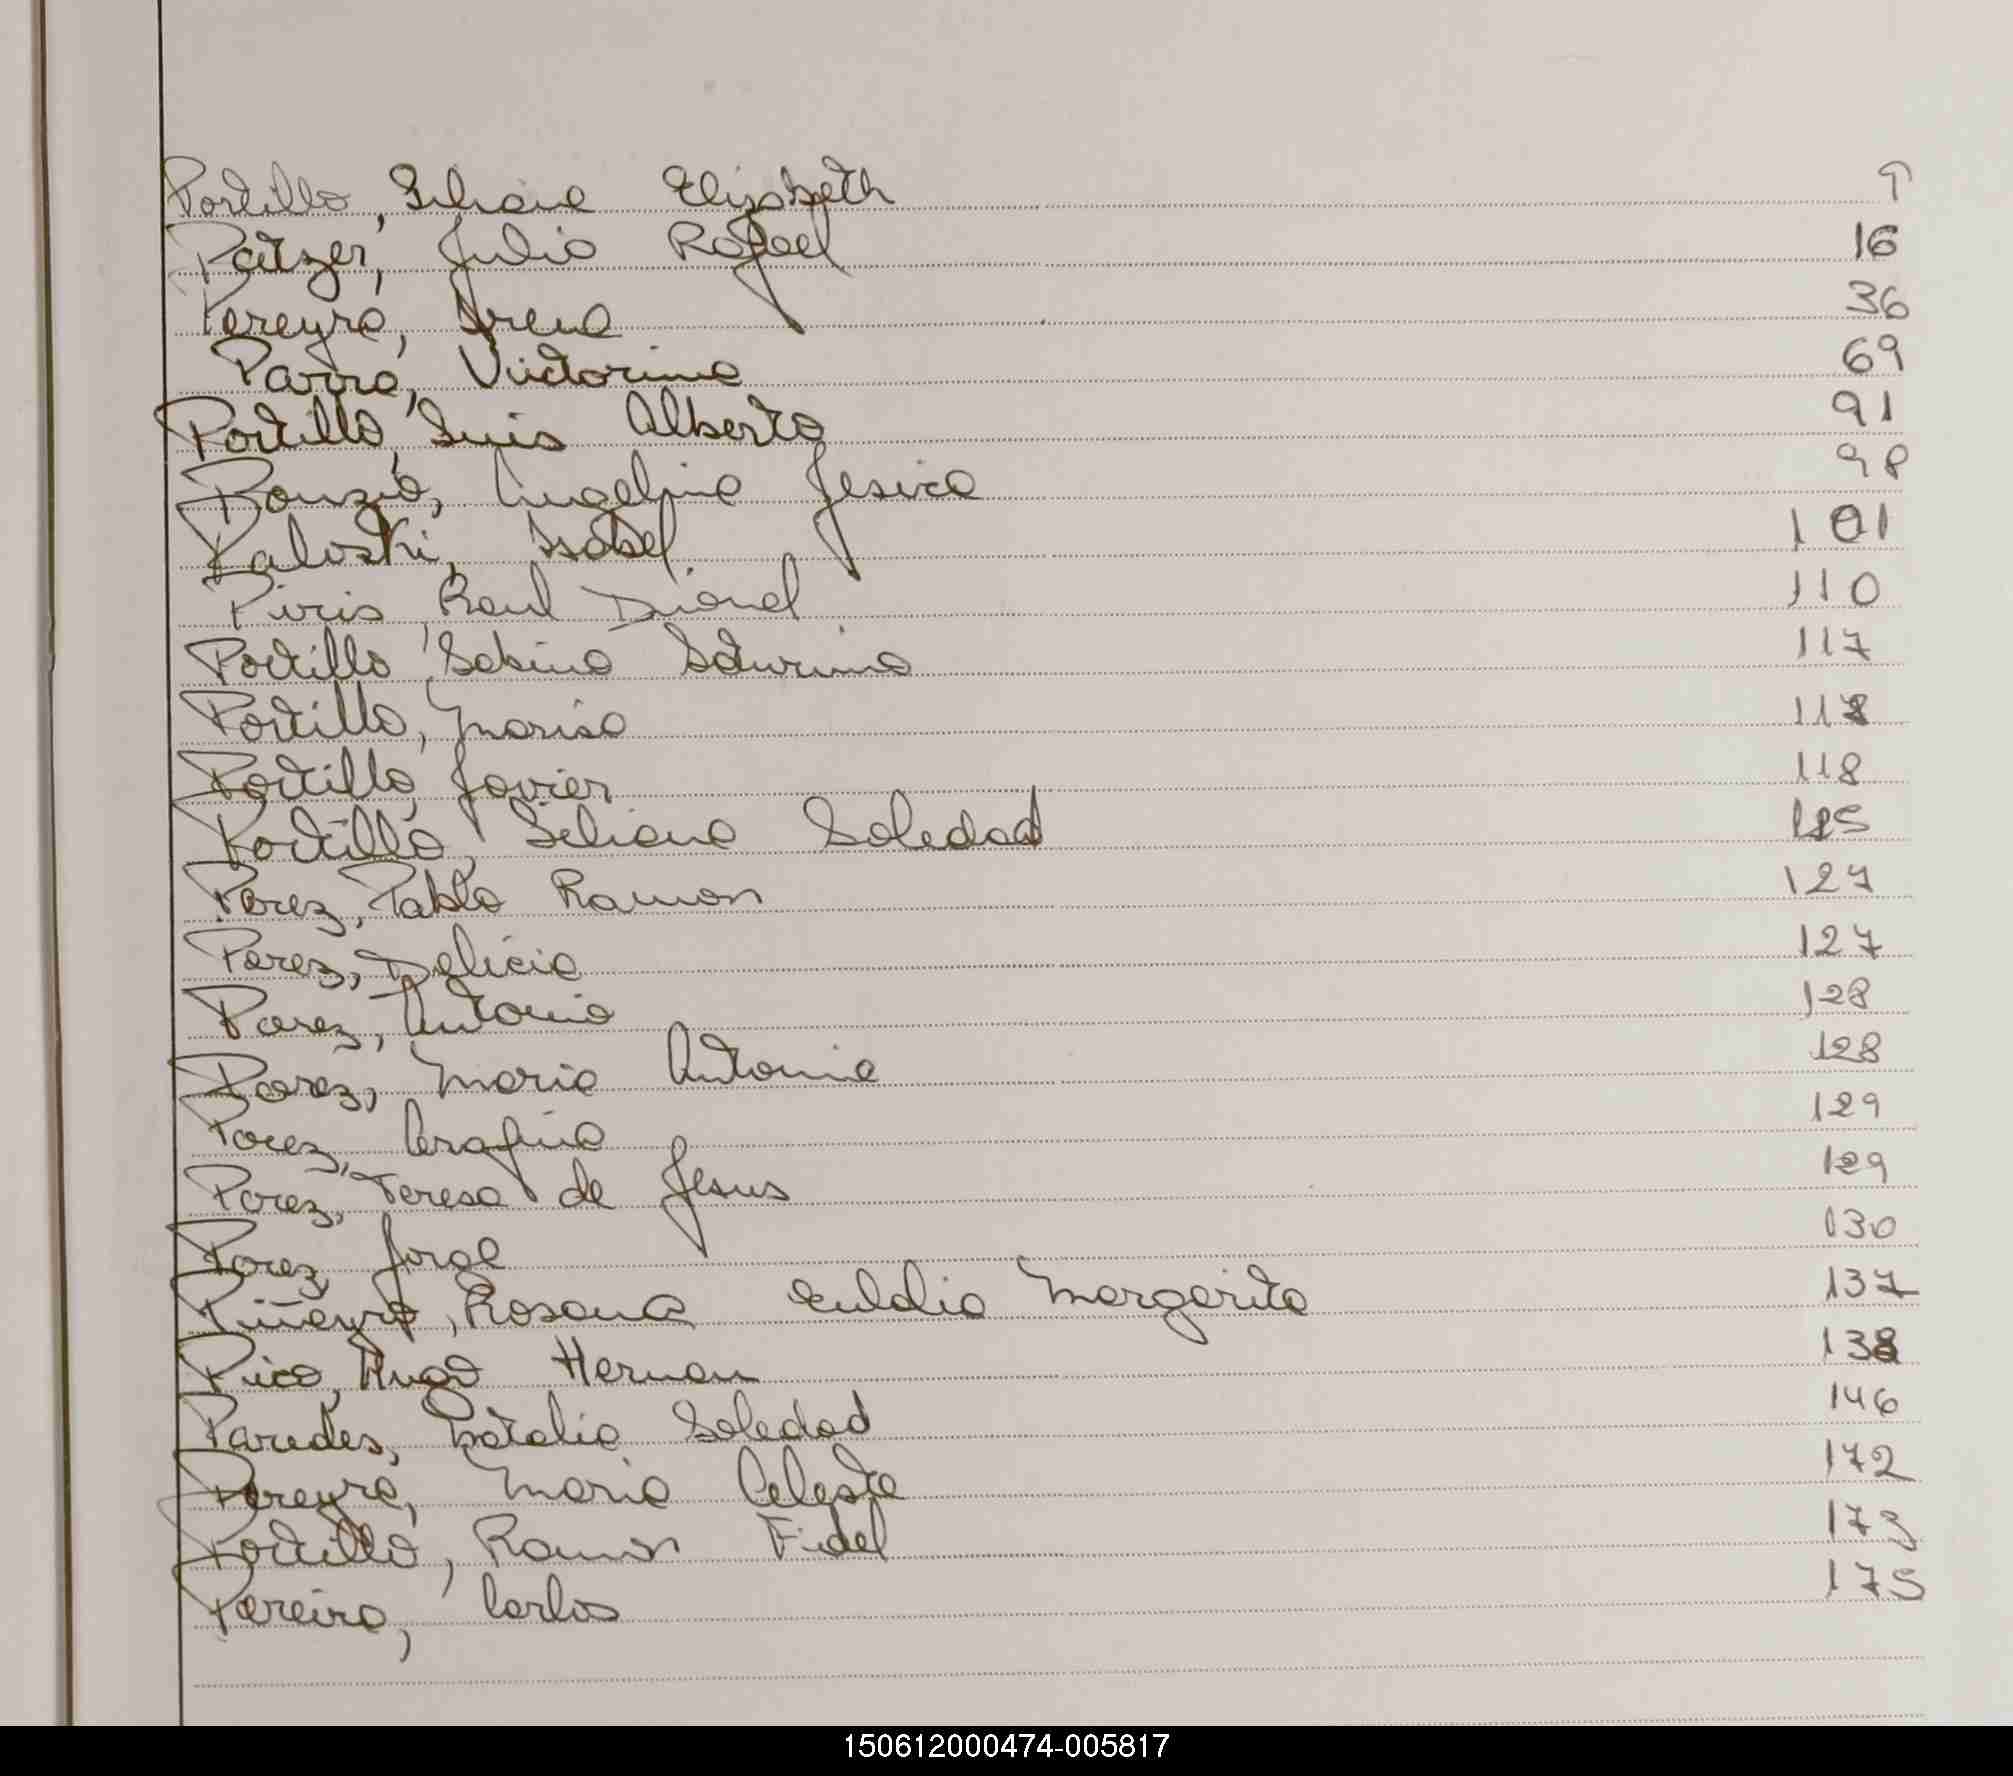 Portillo, Liliana Elizabeth 9
Patzer, Julio Rafael 16
Pereyra, Irena 36
Parra, Victorina 69
Portillo, Luis Alberto 91
Ponzio, Angelina Jesica 98
Paloski, Isabel 101
Piris, Raul Dionel 110
Portillo, Sabina Saturnina 117
Portillo, Marisa 118
Portillo, Javier 118
Portillo, Liliana Soledad 125
Perez, Pablo Ramon 127
Perez, Delicia 127
Perez, Antonia 128
Perez, Maria Antonia 128
Perez, 129
Perez, Teresa de Jesus 129
Perez, Jorge 130
Piñeyro, Rosana Eulalia Margarita 137
Pico, Hugo Hernan 138
Paredes, Natalia Soledad 146
Pereyra, Maria Celeste 172
Portillo, Ramon Fidel 173
Pereira, Carlos 175
150612000474-005817